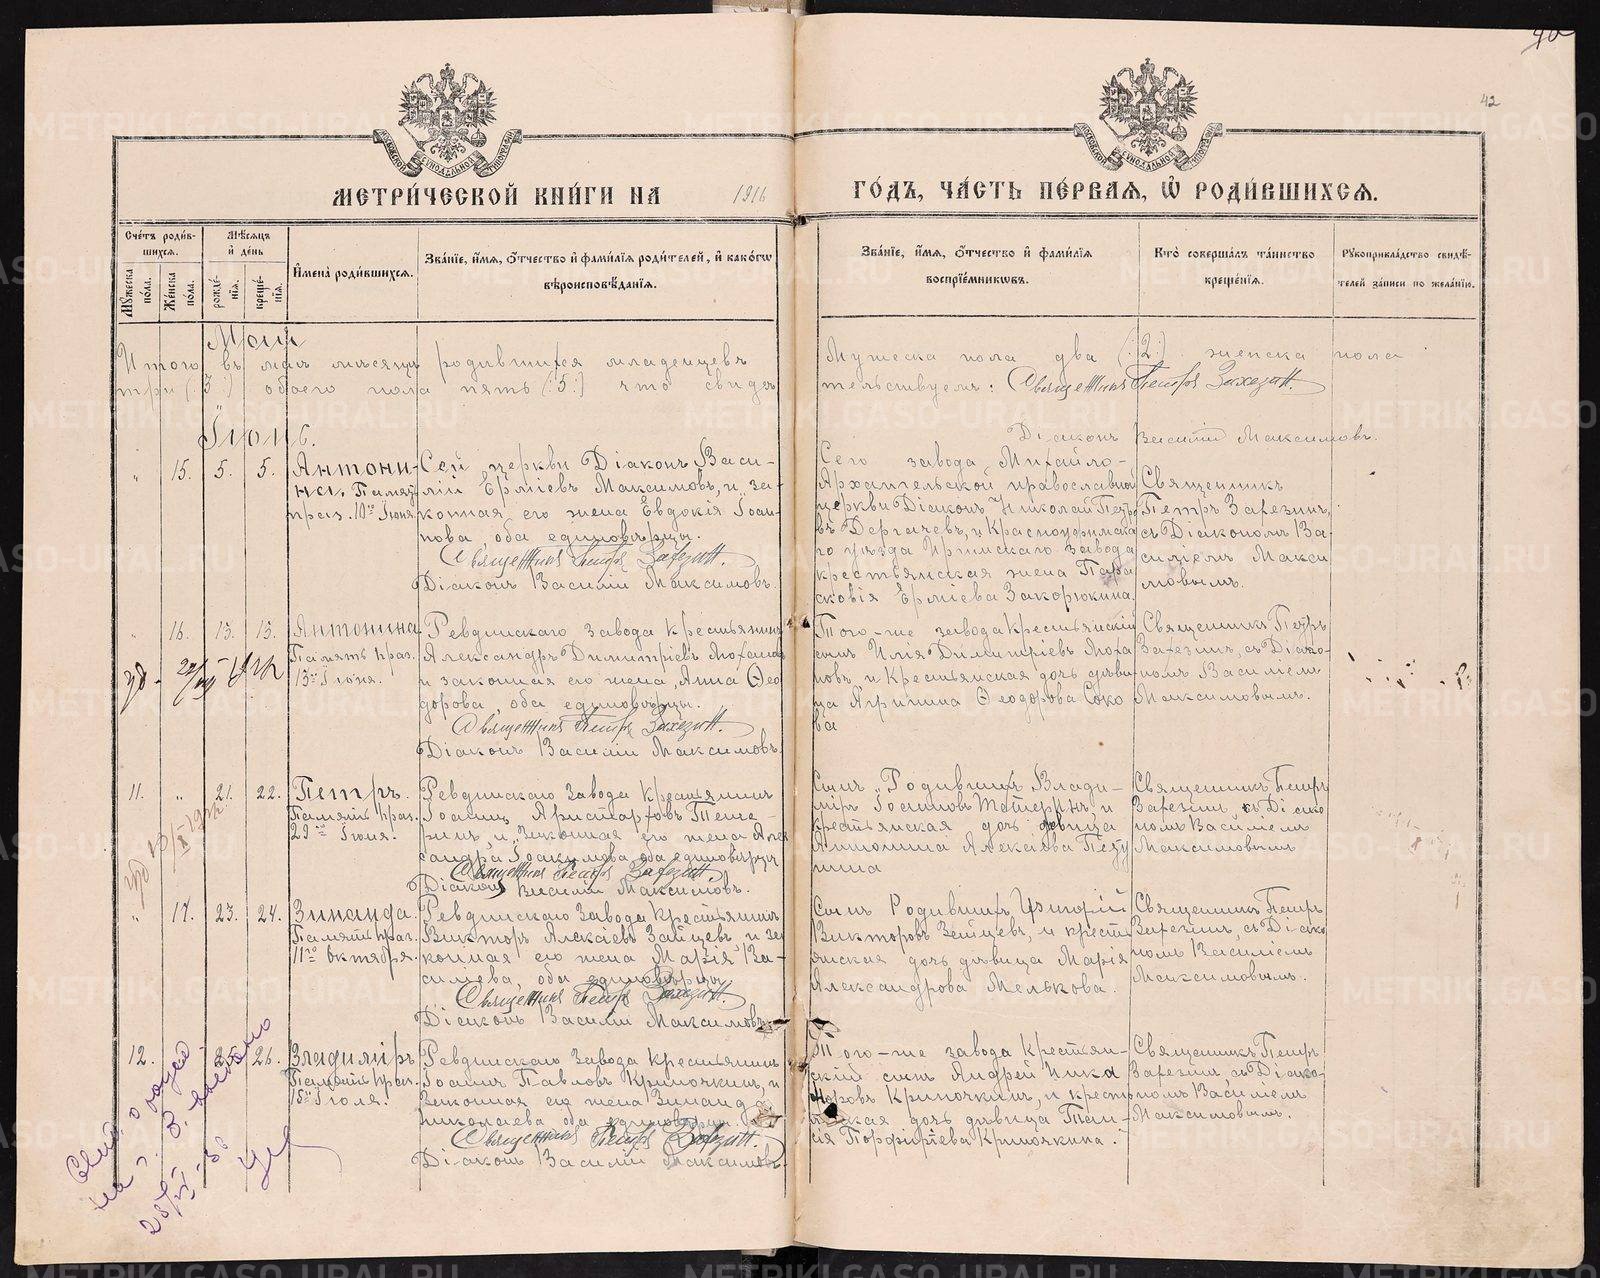 42
МЕТРИ́ЧЕСКОЙ КНИ́ГИ НА 1916 ГО́ДЪ, ЧА́СТЬ ПЕ́РВАЯ, Ѿ РОДИ́ВШИХСЯ.
Сче́тъ роди́вшихся.
Му́жеска по́ла.
Же́нска по́ла.
Мѣ́сяцъ и҆ де́нь
рожде́нїя.
креще́нїя.
И҆мена̀ роди́вшихся.
Зва́нїе, и҆́мя, ѻ҆́тчество и҆ фами́лїя роди́телей, и҆ како́гѡ вѣроисповѣ́данїя.
Зва́нїе, и҆́мя, ѻ҆́тчество и҆ фами́лїя воспрїе́мникѡвъ.
Кто̀ соверша́лъ та́инство креще́нїя.
Рꙋкоприкла́дство свидѣ́телей за́писи по жела́нїю.
Май
Итого въ маѣ мѣсяцѣ родившихся младенцевъ
Мужеска пола два (:2:) женска пола
три (:3:) обоего пола пять (:5:) что свидѣ
тельствуемъ: Священникъ Петръ
Діаконъ Василій Максимовъ.
Іюнь.
" 15. 5. 5.
Антони-
на. Память
праз. 10го Іюня.
Сей церкви Діаконъ Васи-
лій Ерміевъ Максимовъ, и за-
конная его жена Евдокія Іоан-
нова, оба единовѣрцы.
Священникъ Петръ
Діаконъ Василій Максимовъ.
Сего завода Михайло-
Архангельской православной
церкви Діаконъ Николай Петро
въ Дергачевъ, и Красноуфимска
го уѣзда Иргинскаго завода
крестьянская жена Пара
сковія Ерміева Закорюкина.
Священникъ
Петръ
съ Діакономъ Ва-
силіемъ Макси
мовымъ.
" 16. 13. 13.
Антонина
Память праз.
13го Іюня.
Ревдинскаго завода крестьянинъ
Александръ Димитріевъ
и законная его жена Анна Ѳео
дорова, оба единовѣрцы.
Священникъ Петръ
Діаконъ Василій Максимовъ.
Того-же завода крестьянскій
сынъ Илія Димитріевъ
и крестьянская дочь дѣви
ца Агрипина Ѳеодорова Соко
ва
Священникъ Петръ
съ Діако-
номъ Василіемъ
Максимовымъ.
11. " 21. 22.
Петръ.
Память праз.
29го Іюня.
Ревдинскаго завода крестьянинъ
Іоаннъ Аристарховъ Тете-
ринъ, и законная его жена Алек
сандра Іоакимова оба единовѣрцы
Священникъ Петръ
Діаконъ Василій Максимовъ.
Сынъ Родившихъ Влади-
міръ Іоанновъ Тетеринъ, и
крестьянская дочь дѣвица
Антонина Алексіева
Священникъ Петръ
съ Діако
номъ Василіемъ
Максимовымъ
" 17. 23. 24.
Зинаида.
Память праз.
11го октября.
Ревдинскаго завода крестьянинъ
Викторъ Алексіевъ Зайцевъ, и за
конная его жена Марія Ва-
силіева, оба единовѣрцы
Священникъ Петръ
Діаконъ Василій Максимовъ.
Сынъ Родившихъ
Викторовъ Зайцевъ, и кресть
янская дочь дѣвица Марія
Александрова Мелькова.
Священникъ Петръ
съ Діако
номъ Василіемъ
Максимовымъ.
12. 25. 26.
Владиміръ
Память праз.
15го Іюля.
Ревдинскаго завода крестьянинъ
Іоаннъ Павловъ Крючкинъ, и
Законная его жена Зинаида
Николаева оба единовѣрцы.
Священникъ Петръ
Діаконъ Василій Максимовъ.
Того-же завода крестьян-
скій сынъ Андрей Ника
норовъ Крючкинъ, и кресть
янская дочь дѣвица Таи-
сія Порфиріева Крючкина.
Священникъ Петръ
съ Діако-
номъ Василіемъ
Максимовымъ.
METRIKI.GASO-URAL.RU